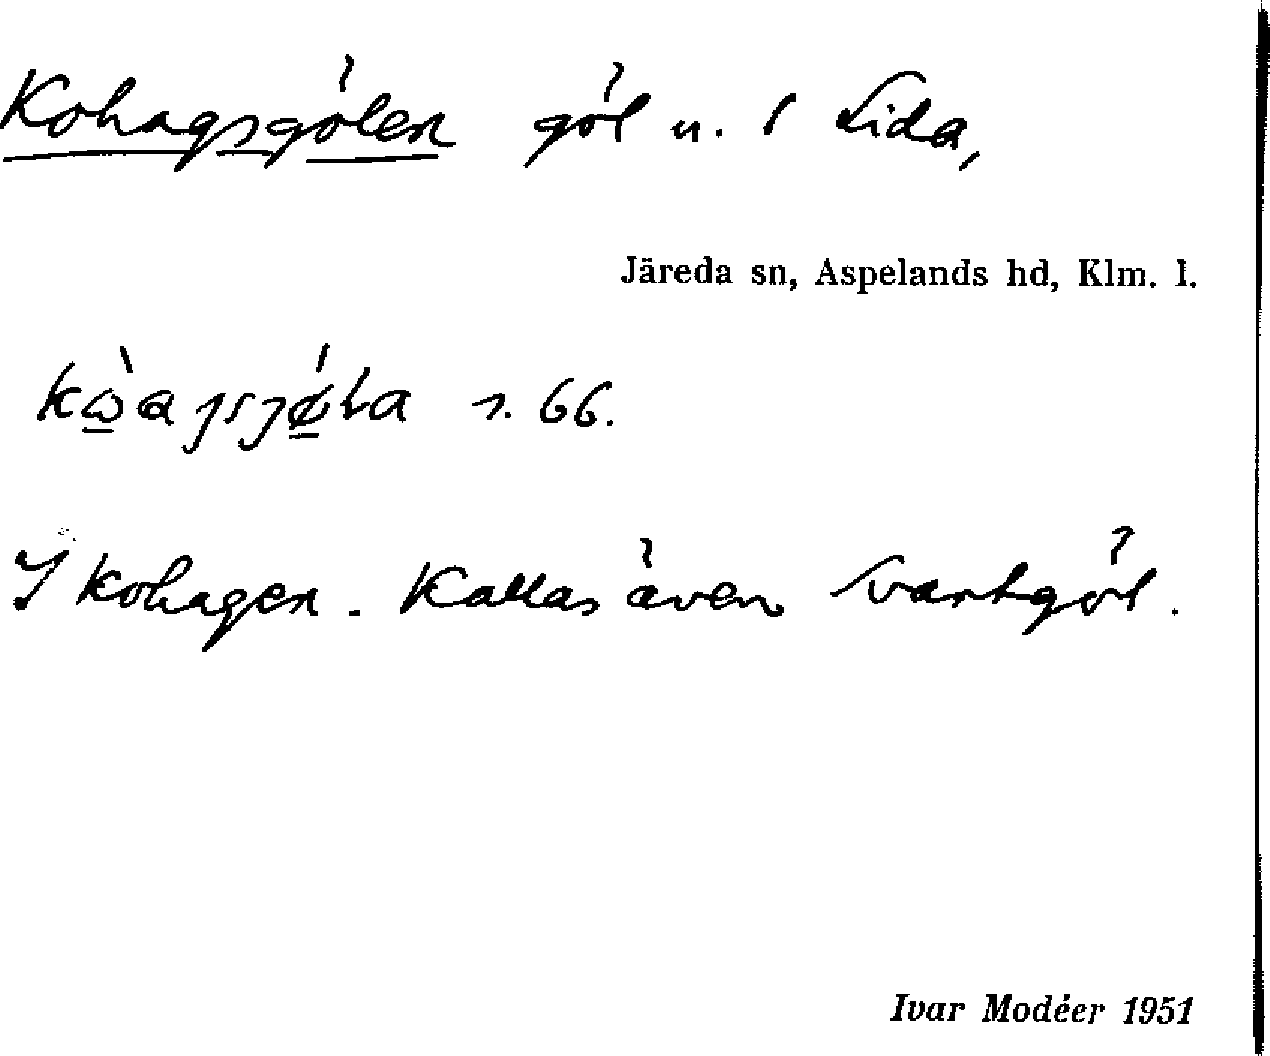 Kohagsgölen göl u. 1 Lida,
Järeda sn, Aspelands hd, Klm. l.
s. 66.
I kohagen. Kallas även Svartgöl.
Ivar Modéer 1951